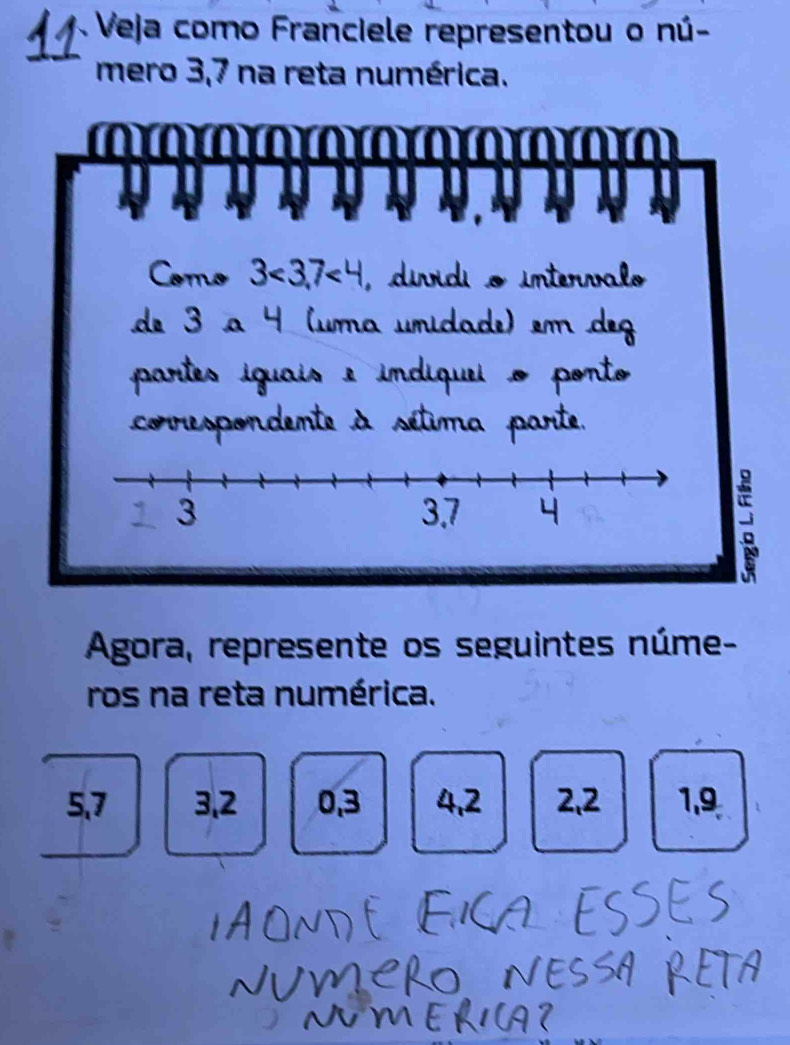 11. Veja como Franciele representou o nú-
mero 3,7 na reta numérica.
Como 3<3,7<4, dividi o intervalo
de 3 a 4 (uma unidade) em dez
partes iguais e indiquei o ponto
correspondente à sétima parte.
3 3,7 4
Sergio L. Filho
Agora, represente os seguintes núme-
ros na reta numérica.
5,7 3,2 0,3 4,2 2,2 1,9
AONDE FICA ESSES
NUMERO NESSA RETA
NUMERICA?